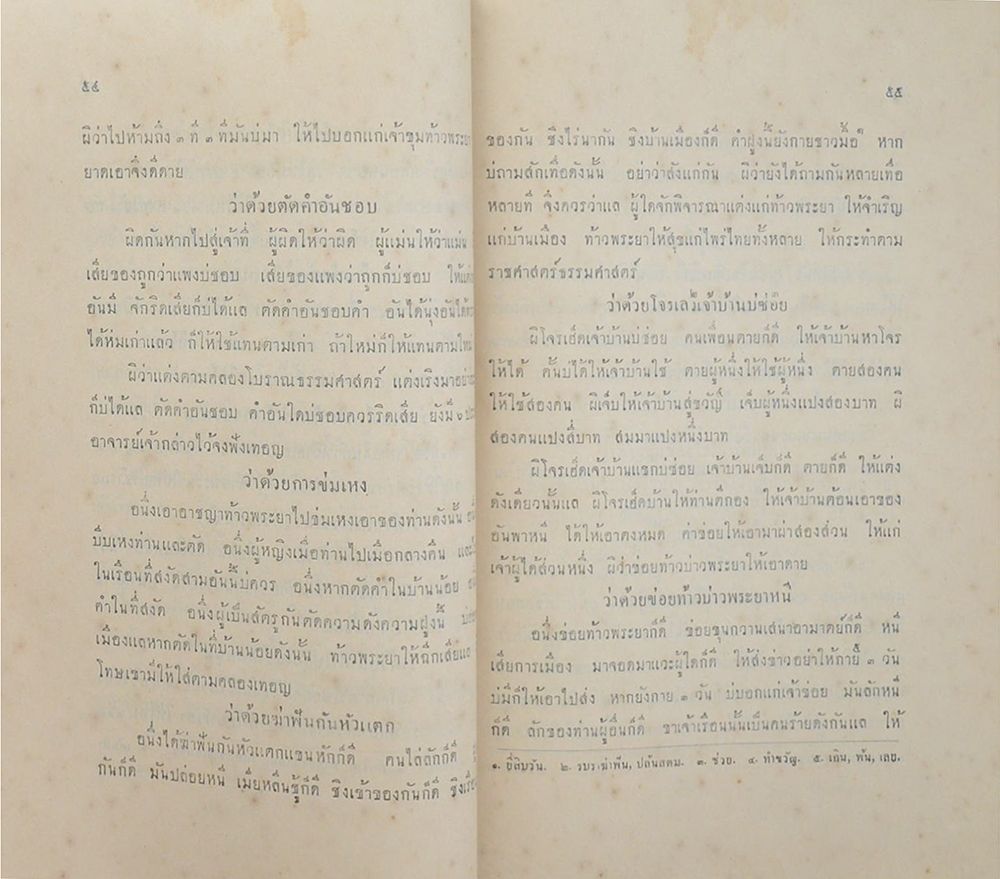 ๔๕
ผิว่าไปห้ามถึง ๓ ที่ ๓ ที่มันบ่มา ให้ไปบอกแก่เจ้าขุมท้าวพระยา
ยาดเอาจิ่งดีดาย
ว่าด้วยตัดคำอันชอบ
ผิดกันหากไปสู่เจ้าที่ ผู้ผิดให้ว่าผิด ผู้แม่นให้ว่าแม่น
เสียของถูกว่าแพงบ่ชอบ เสียของแพงว่าถูกก็บ่ชอบ ให้แต่ง
อันมี จักริดเสียก็บ่ได้แล ตัดคำอันชอบคำ อันได้นุ่งอันได้
ได้ห่มเก่าแล้ว ก็ให้ใช้แทนตามเก่า ถ้าใหม่ก็ให้แทนตามใหม่
ผิว่าแต่งตามคลองโบราณธรรมศาสตร์ แต่งเริงมา
ก็บ่ได้แล ตัดคำอันชอบ คำอันใดบ่ชอบควรริดเสีย ยังมี
อาจารย์เจ้ากล่าวไว้จงฟังเทอญ
ว่าด้วยการข่มเหง
อนึ่งเอาอาชญาท้าวพระยาไปข่มเหงเอาของท่านดังนั้น
บีบเหงท่านและตัด อนึ่งผู้หญิงเมื่อท่านไปเมือกลางคืน
ในเรือนที่สงัดสามอันนี้บ่ควร อนึ่งหากตัดคำในบ้านน้อย
คำในที่สงัด อนึ่งผู้เป็นสัตรูกันตัดความดังความฝูงนี้
เมืองแลหากตัดในที่บ้านน้อยดังนั้น ท้าวพระยาให้ฉีกเสีย
โทษเขามีให้ใส่ตามคลองเทอญ
ว่าด้วยฆ่าฟันกันหัวแตก
อนึ่งได้ฆ่าฟันกันหัวแตกแขนหักก็ดี คนไล่ลักก็ดี
กันก็ดี มันปล่อยหนี เมียหลิ่นชู้ก็ดี ชิงเข้าของกันก็ดี
๕๕
ของกัน ชิงไร่นากัน ชิงบ้านเมืองก็ดี คำฝูงนี้ยังกายซาวมื้อ๑ หาก
บ่ถามสักเทื่อดังนั้น อย่าว่าสังแก่กัน ผิว่ายังได้ถามกันหลายเทื่อ
หลายที่ จิ่งควรว่าแล ผู้ใดจักพิจารณาแต่งแก่ท้าวพระยา ให้จำเริญ
แก่บ้านเมือง ท้าวพระยาให้สุขแก่ไพร่ไทยทั้งหลาย ให้กระทำตาม
ราชศาสตร์ธรรมศาสตร์
ว่าด้วยโจรเลว๒เจ้าบ้านบ่ช่อย๓
ผิโจรเฮ็ดเจ้าบ้านบ่ช่อย คนเพื่อนตายก็ดี ให้เจ้าบ้านหาโจร
ให้ได้ คันบ่ได้ให้เจ้าบ้านใช้ ตายผู้หนึ่งให้ใช้ผู้หนึ่ง ตายสองคน
ให้ใช้สองคน ผิเจ็บให้เจ้าบ้านสู่ขวัญ๔ เจ็บผู้หนึ่งแปงสองบาท ผิ
สองคนแปงสี่บาท สมมาแปงหนึ่งบาท
ผิโจรเฮ็ดเจ้าบ้านแขกบ่ช่อย เจ้าบ้านเจ็บก็ดี ตายก็ดี ให้แต่ง
ดังเดียวนั้นแล ผิโจรเฮ็ดบ้านให้ท่านตีกอง ให้เจ้าบ้านต้อนเอาของ
อันพาหนี ได้ให้เอาดงหมด ค่าช่อยให้เอามาผ่าสองส่วน ให้แก่
เจ้าผู้ได้ส่วนหนึ่ง ผิว่าช่อยท้าวบ่าวพระยาให้เอาดาย
ว่าด้วยข่อยท้าวบ่าวพระยาหนี
อนึ่งข่อยท้าวพระยาก็ดี ข่อยขุนกวานเสนาอามาตย์ก็ดี หนี
เสียการเมือง มาจอดมาแวะผู้ใดก็ดี ให้ส่งข่าวอย่าให้กาย๕ ๓ วัน
บ่มีก็ให้เอาไปส่ง หากยังกาย ๓ วัน บ่บอกแก่เจ้าข่อย มันลักหนี
ก็ดี ลักของท่านผู้อื่นก็ดี ชาเจ้าเรือนนั้นเป็นคนร้ายดังกันแล ให้
๑. ยี่สิบวัน. ๒. รบราฆ่าฟัน, ปล้นสดม. ๓. ช่วย. ๔. ทำขวัญ. ๕. เกิน, พ้น, เลย.